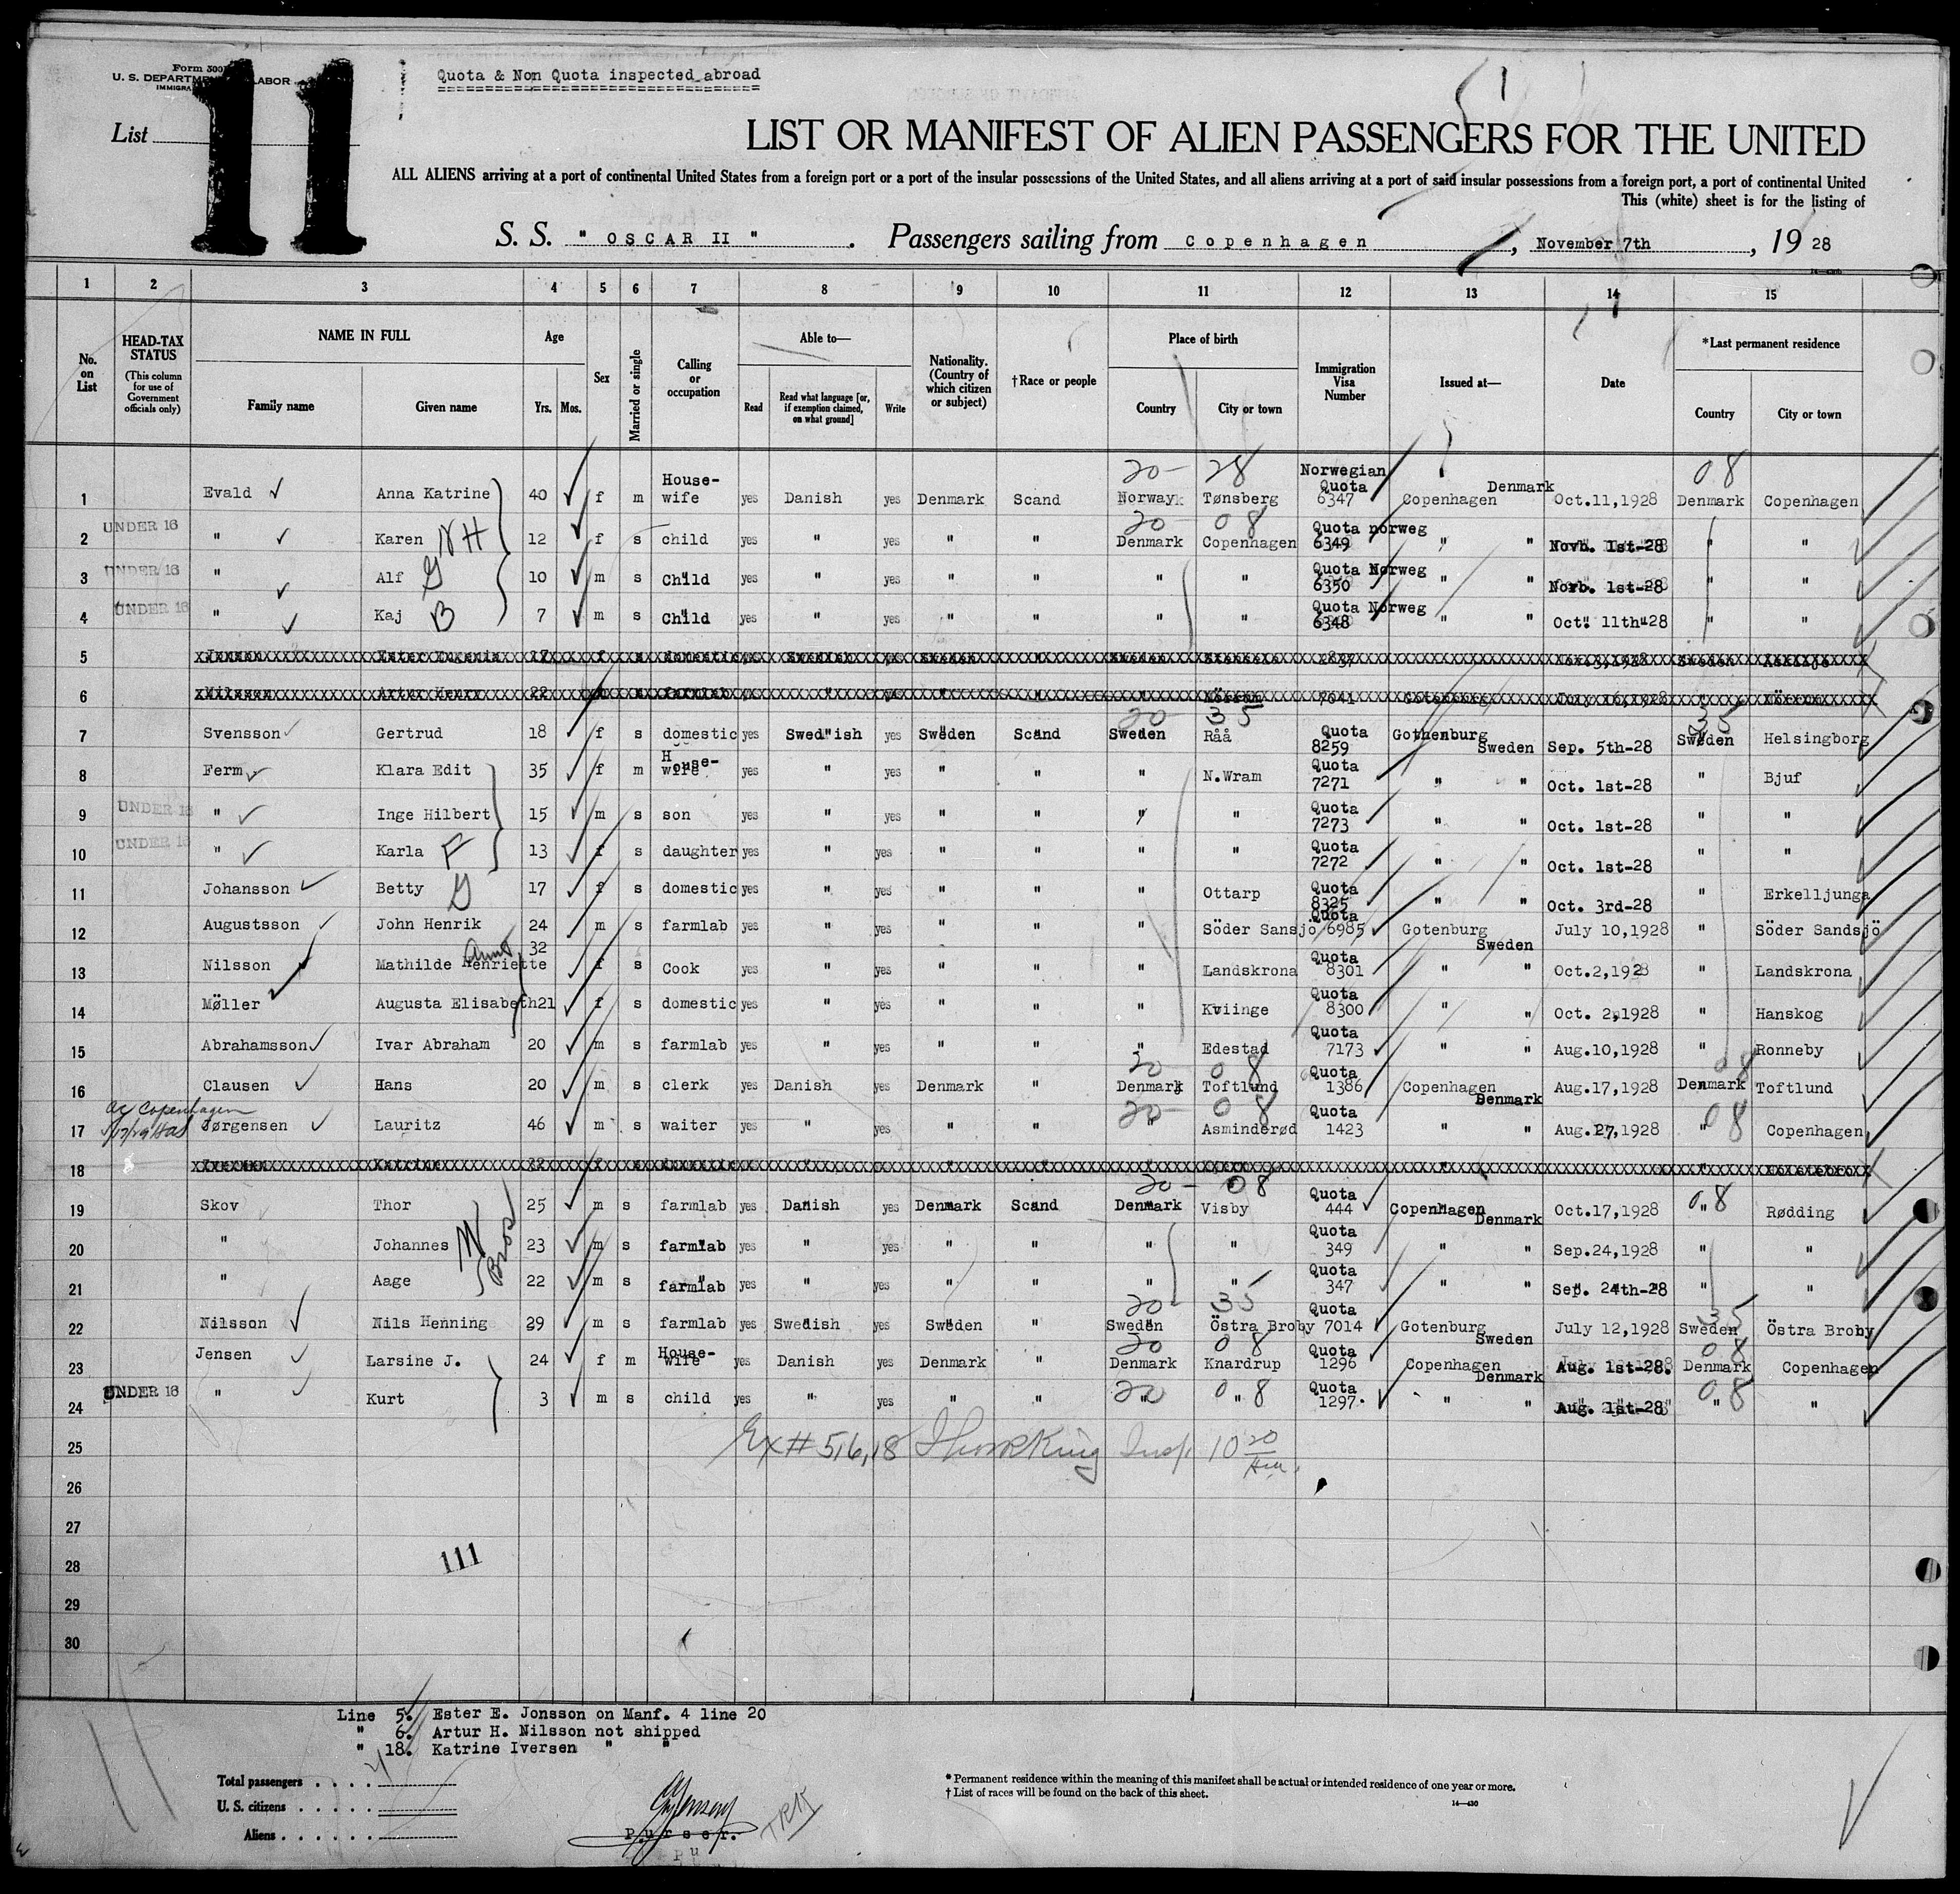 Form 500
U. S. DEPARTMENT LABOR
IMMIGRA
Quota & Non Quota inspected abroad
List 11
LIST OR MANIFEST OF ALIEN PASSENGERS FOR THE UNITED
ALL ALIENS arriving at a port of continental United States from a foreign port or a port of the insular possessions of the United States, and all aliens arriving at a port of said insular possessions from a foreign port, a port of continental United
This (white) sheet is for the listing of
S. S. " OSCAR II " . Passengers sailing from Copenhagen , November 7th , 19 28
1 2 3 4 5 6 7 8 9 10 11 12 13 14 15
No. on List
HEAD-TAX STATUS (This column for use of Government officials only)
NAME IN FULL Family name Given name
Age Yrs. Mos.
Sex
Married or single
Calling or occupation
Able to— Read Read what language [or, if exemption claimed, on what ground] Write
Nationality. (Country of which citizen or subject)
†Race or people
Place of birth Country City or town
Immigration Visa Number
Issued at—
Date
*Last permanent residence Country City or town
20- 28 08
1 Evald Anna Katrine 40 f m House-wife yes Danish yes Denmark Scand Norway Tønsberg Norwegian Quota 6347 Copenhagen Denmark Oct.11,1928 Denmark Copenhagen
20- 08
UNDER 16 2 " Karen NH 12 f s child yes " yes " " Denmark Copenhagen Quota norweg 6349 " " Novb. 1st-28 " "
UNDER 16 3 " Alf G 10 m s Child yes " yes " " " " Quota Norweg 6350 " " Norb. 1st-28 " "
UNDER 16 4 " Kaj B 7 m s Child yes " yes " " " " Quota Norweg 6348 " " Oct. 11th-28 " "
5
6
20- 35 35
7 Svensson Gertrud 18 f s domestic yes Swedish yes Sweden Scand Sweden Råå Quota 8259 Gothenburg Sweden Sep. 5th-28 Sweden Helsingborg
8 Ferm Klara Edit 35 f m House-wife yes " yes " " " N.Wram Quota 7271 " " Oct. 1st-28 " Bjuf
UNDER 16 9 " Inge Hilbert 15 m s son yes " yes " " " " Quota 7273 " " Oct. 1st-28 " "
UNDER 16 10 " Karla F 13 f s daughter yes " yes " " " " Quota 7272 " " Oct. 1st-28 " "
11 Johansson Betty G 17 f s domestic yes " yes " " " Ottarp Quota 8325 " " Oct. 3rd-28 " Erkelljunga
12 Augustsson John Henrik 24 m s farmlab yes " yes " " " Söder Sansjö Quota 6985 Gotenburg Sweden July 10,1928 " Söder Sandsjö
13 Nilsson Mathilde Henriette 32 f s Cook yes " yes " " " Landskrona Quota 8301 " " Oct.2,1928 " Landskrona
14 Møller Augusta Elisabeth 21 f s domestic yes " yes " " " Kviinge Quota 8300 " " Oct. 2,1928 " Hanskog
15 Abrahamsson Ivar Abraham 20 m s farmlab yes " yes " " " Edestad Quota 7173 " " Aug.10,1928 " Ronneby
20 08 08
16 Clausen Hans 20 m s clerk yes Danish yes Denmark " Denmark Toftlund Quota 1386 Copenhagen Denmark Aug.17,1928 Denmark Toftlund
Copenhagen
20- 08 08
17 Jørgensen Lauritz 46 m s waiter yes " yes " " " Asminderød Quota 1423 " " Aug.27,1928 Copenhagen
18
20- 08 08
19 Skov Thor 25 m s farmlab yes Danish yes Denmark Scand Denmark Visby Quota 444 Copenhagen Denmark Oct.17,1928 " Rødding
20 " Johannes 23 m s farmlab yes " yes " " " " Quota 349 " " Sep.24,1928 " "
Bros
21 " Aage 22 m s farmlab yes " yes " " " " Quota 347 " " Sep. 24th-28 " "
20 35 35
22 Nilsson Nils Henning 29 m s farmlab yes Swedish yes Sweden " Sweden Östra Broby Quota 7014 Gotenburg Sweden July 12,1928 Sweden Östra Broby
20 08 08
23 Jensen Larsine J. 24 f m House-wife yes Danish yes Denmark " Denmark Knardrup Quota 1296 Copenhagen Denmark Aug. 1st-28. Denmark Copenhagen
20 08 08
UNDER 16 24 " Kurt 3 m s child yes " yes " " " " Quota 1297. " " Aug. 1st-28 " "
25 Ex # 5,6,18 Insp 10 20
26
27
28
111
29
30
Line 5. Ester E. Jonsson on Manf. 4 line 20
" 6. Artur H. Nilsson not shipped
" 18. Katrine Iversen " "
Total passengers
U. S. citizens
Aliens
Purser.
* Permanent residence within the meaning of this manifest shall be actual or intended residence of one year or more.
† List of races will be found on the back of this sheet.
14—430